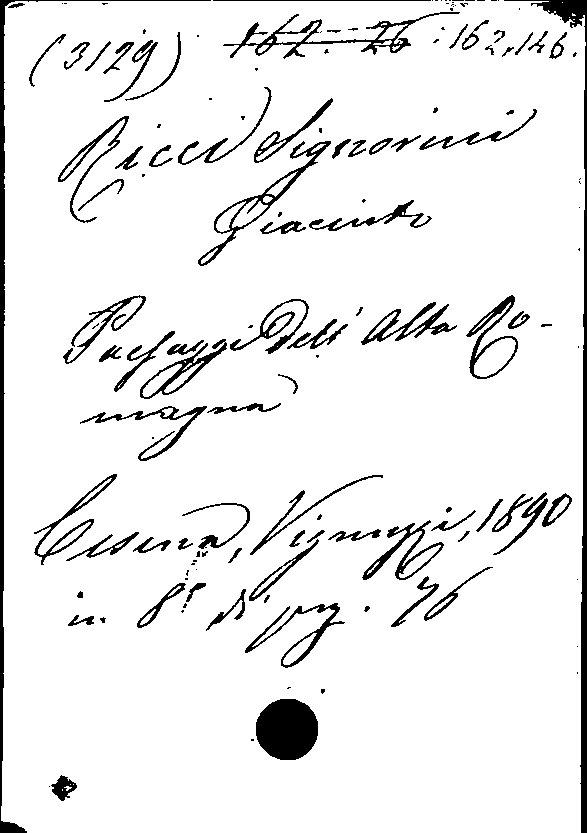 (3129) 162. 26 : 162,146.
Ricci Signorini
Giacinto
Paesaggi dell' Alta Ro-
magna
Cesena, Vignuzzi, 1890
in 8° di pag. 76